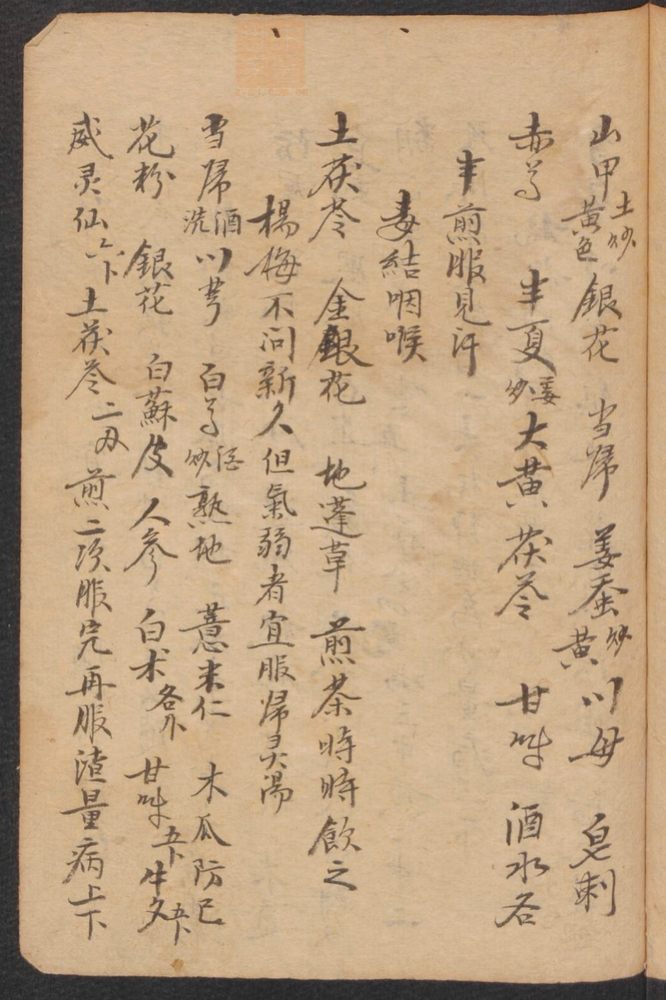 山甲土炒黃色 銀花 当歸 姜蚕炒黃 川母 皂刺
赤芍 半夏姜炒 大黃 茯苓 甘草 酒水各
半煎服見汗
毒結咽喉
土茯苓 金銀花 地蓬草 煎茶時時飲之
楊梅不问新久但氣弱者宜服歸灵湯
当歸酒洗 川芎 白芍酒炒 熟地 薏米仁 木瓜 防己
花粉 銀花 白蘇皮 人參 白术各 甘草 牛夕
威灵仙 土茯苓二刄 煎二次服完再服渣量病上下